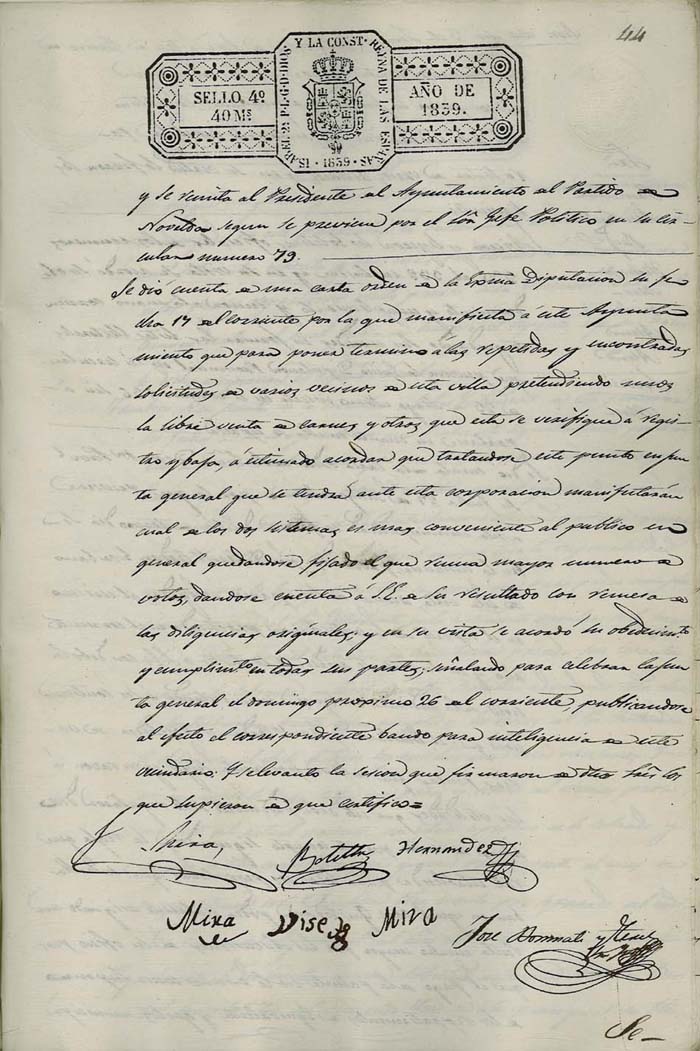 44
ISABEL 2ª P.L.G.D.DIOS Y LA CONST. REYNA DE LAS ESPAÑAS
· 1839 ·
SELLO 4º
40 Mˢ
AÑO DE
1839.
y se remita al Presidente el Ayuntamiento el Partido de
Novelda segun se previene por el Sõr Gefe Politico en su cir-
cular numero 79.
Se dio cuenta de una carta orden de la Exma Diputacion su fe
cha 17 el corriente por la que manifiesta á este Ayunta
miento que para poner termino a las repetidas y encontradas
solicitudes de varios vecinos de esta villa pretendiendo unos
la libre venta de carnes y otros que esta se verifique á regis-
tro y baja, á estimado acordar que tratandose este punto en jun
ta general que se tendrá ante esta corporacion manifestarán
cual de los dos sistemas es mas conveniente al publico en
general quedandose fijado el que reuna mayor numero de
votos, dandose cuenta á S.E. de su resultado con remesa de
las diligencias originales: y en su vista se acordó su obedecimto
y cumplimto en todas sus partes; señalando para celebrar la jun
ta general el domingo proximo 26 el corriente, publicandose
al efecto el correspondiente bando para inteligencia de este
vecindario: Y se levanto la sesion que firmaron de dhos Sres los
que supieron de que certifico=
Mira Botella Hernandez
Mira Mira
José y
Se